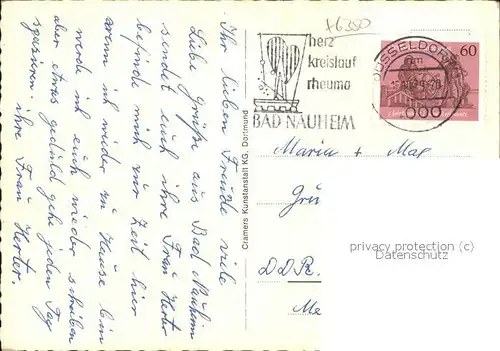 Ihr lieben Freude viele
Liebe Grüße aus Bad Nauheim
sendet euch ihre Frau Herter
befinde mich zur Zeit hier
wenn ich wieder zu Hause bin
werde ich euch wieder schreiben
aber etwas geduld gehe jeden Tag
spazieren. ihre Frau Herter.
Cramers Kunstanstalt KG, Dortmund
+6350
herz
kreislauf
rheuma
BAD NAUHEIM
DÜSSELDORF
60
000
Maria + Max
Grü
DDR.
Me
privacy protection (c)
Datenschutz